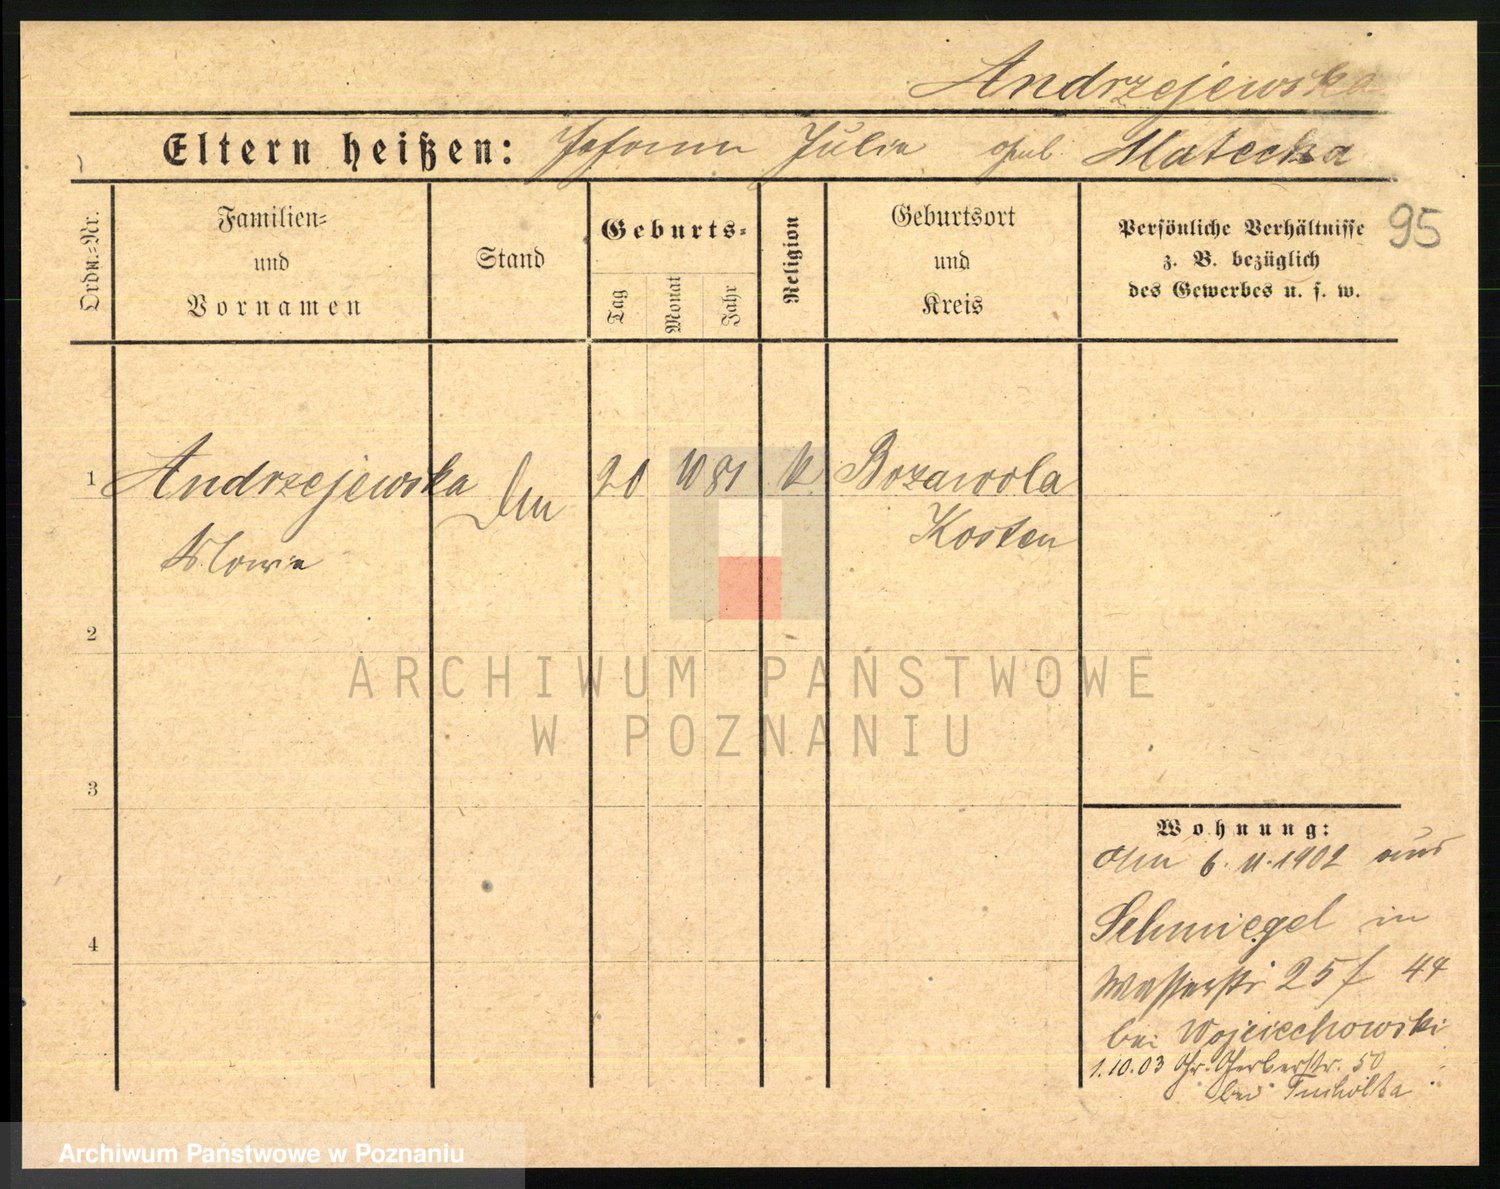 Andrzejewska
Eltern heißen: Johann Julie geb Matecka
95
Ordn.-Nr.
Familien-
und
Vornamen
Stand
Geburts-
Tag
Monat
Jahr
Religion
Geburtsort
und
Kreis
Persönliche Verhältnisse
z. B. bezüglich
des Gewerbes u. s. w.
1 Andrzejewska 20 10 81 k Bozawola
Kosten
2
ARCHIWUM PAŃSTWOWE
W POZNANIU
3
Wohnung:
6. 11. 1902 aus
4
Schmiegel in
Wasserstr 25 / 44
bei Wojciechowski
1.10.03 Gr. Gerberstr. 50
bei Tucholka
Archiwum Państwowe w Poznaniu